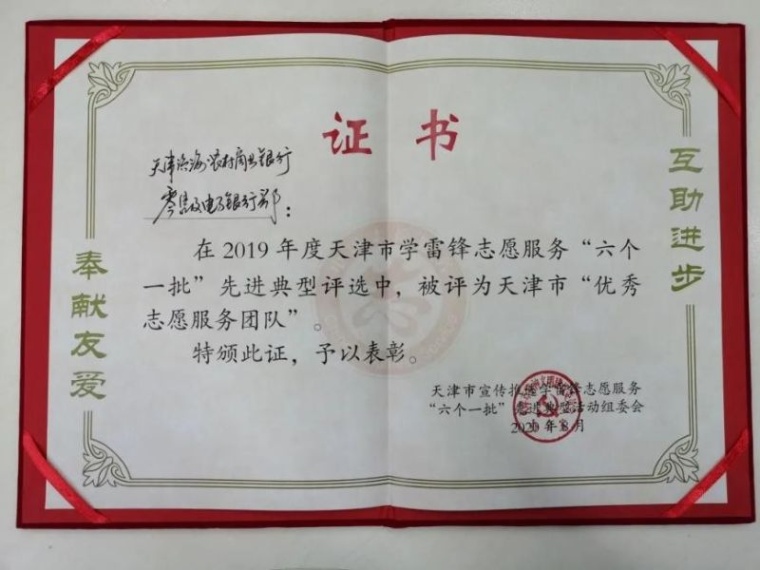 证书
天津滨海农村商业银行
零售及电子银行部：
在 2019 年度天津市学雷锋志愿服务“六个
一批”先进典型评选中，被评为天津市“优秀
志愿服务团队”。
特颁此证，予以表彰。
天津市宣传推选学雷锋志愿服务
“六个一批”先进典型活动组委会
2020 年 8 月
奉献友爱
互助进步